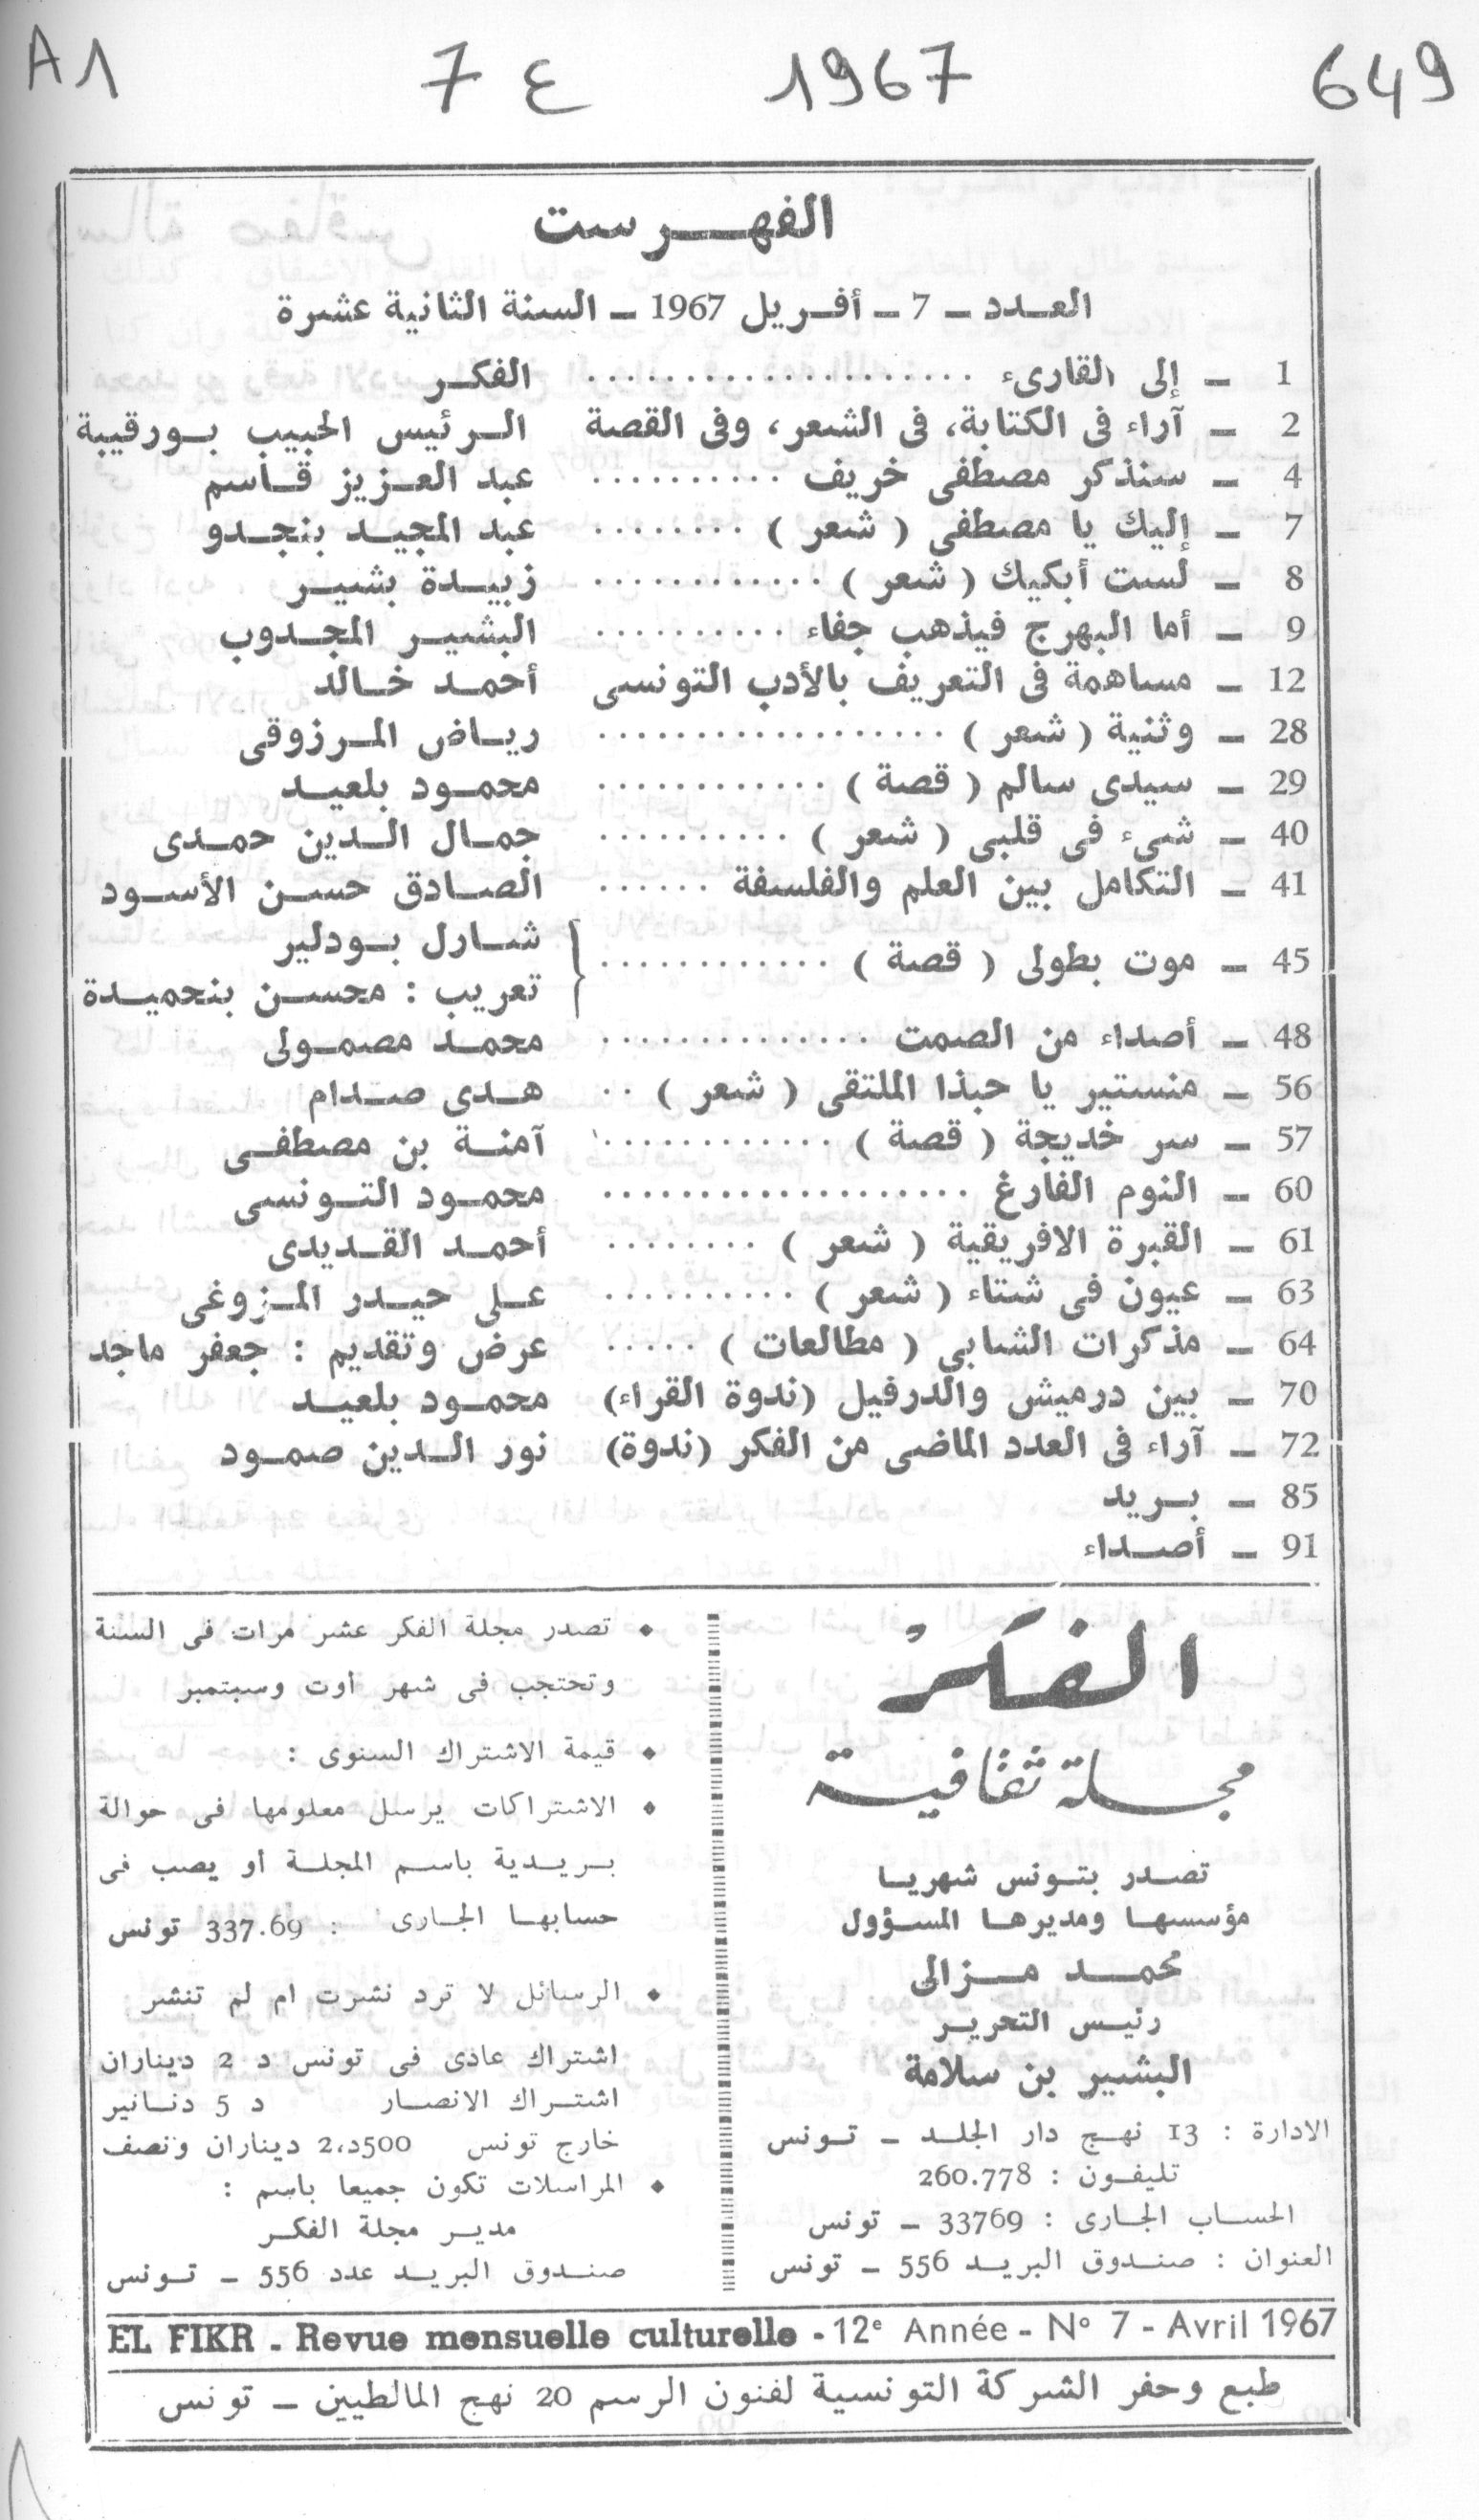 A1 7 ع 1967 649
الفهرست
العدد ــ 7 ــ أفريل 1967 ــ السنة الثانية عشرة
1 ــ إلى القارىء .................... الفكر
2 ــ آراء فى الكتابة، فى الشعر، وفى القصة الرئيس الحبيب بورقيبة
4 ــ سنذكر مصطفى خريف .......... عبد العزيز قاسم
7 ــ إليك يا مصطفى ( شعر ) ........ عبد المجيد بنجدو
8 ــ لست أبكيك ( شعر ) ............ زبيدة بشير
9 ــ أما البهرج فيذهب جفاء .......... البشير المجدوب
12 ــ مساهمة فى التعريف بالأدب التونسى أحمد خالد
28 ــ وثنية ( شعر ) .................. رياض المرزوقى
29 ــ سيدى سالم ( قصة ) ............ محمود بلعيد
40 ــ شىء فى قلبى ( شعر ) .......... جمال الدين حمدى
41 ــ التكامل بين العلم والفلسفة ...... الصادق حسن الأسود
45 ــ موت بطولى ( قصة ) ............ شارل بودلير
تعريب : محسن بنحميدة
48 ــ أصداء من الصمت .............. محمد مصمولى
56 ــ منستير يا حبذا الملتقى ( شعر ) .. هدى صدام
57 ــ سر خديجة ( قصة ) ............ آمنة بن مصطفى
60 ــ النوم الفارغ ................... محمود التونسى
61 ــ القبرة الافريقية ( شعر ) ........ أحمد القديدى
63 ــ عيون فى شتاء ( شعر ) .......... على حيدر المزوغى
64 ــ مذكرات الشابى ( مطالعات ) ..... عرض وتقديم : جعفر ماجد
70 ــ بين درميش والدرفيل (ندوة القراء) محمود بلعيد
72 ــ آراء فى العدد الماضى من الفكر (ندوة) نور الدين صمود
85 ــ بريد
91 ــ أصداء
الفكرُ
مجلة ثقافية
تصدر بتونس شهريا
مؤسسها ومديرها المسؤول
محمد مزالى
رئيس التحرير
البشير بن سلامة
الادارة : 13 نهج دار الجلد ــ تونس
تليفون : 260.778
الحساب الجارى : 33769 ــ تونس
العنوان : صندوق البريد 556 ــ تونس
• تصدر مجلة الفكر عشر مرات فى السنة
وتحتجب فى شهر أوت وسبتمبر
• قيمة الاشتراك السنوى :
• الاشتراكات يرسل معلومها فى حوالة
بريدية باسم المجلة أو يصب فى
حسابها الجارى : 337.69 تونس
• الرسائل لا ترد نشرت ام لم تنشر
اشتراك عادى فى تونس د 2 ديناران
اشتراك الانصار د 5 دنانير
خارج تونس 500د،2 ديناران ونصف
• المراسلات تكون جميعا باسم :
مدير مجلة الفكر
صندوق البريد عدد 556 ــ تونس
EL FIKR - Revue mensuelle culturelle - 12e Année - N° 7 - Avril 1967
طبع وحفر الشركة التونسية لفنون الرسم 20 نهج المالطيين ــ تونس